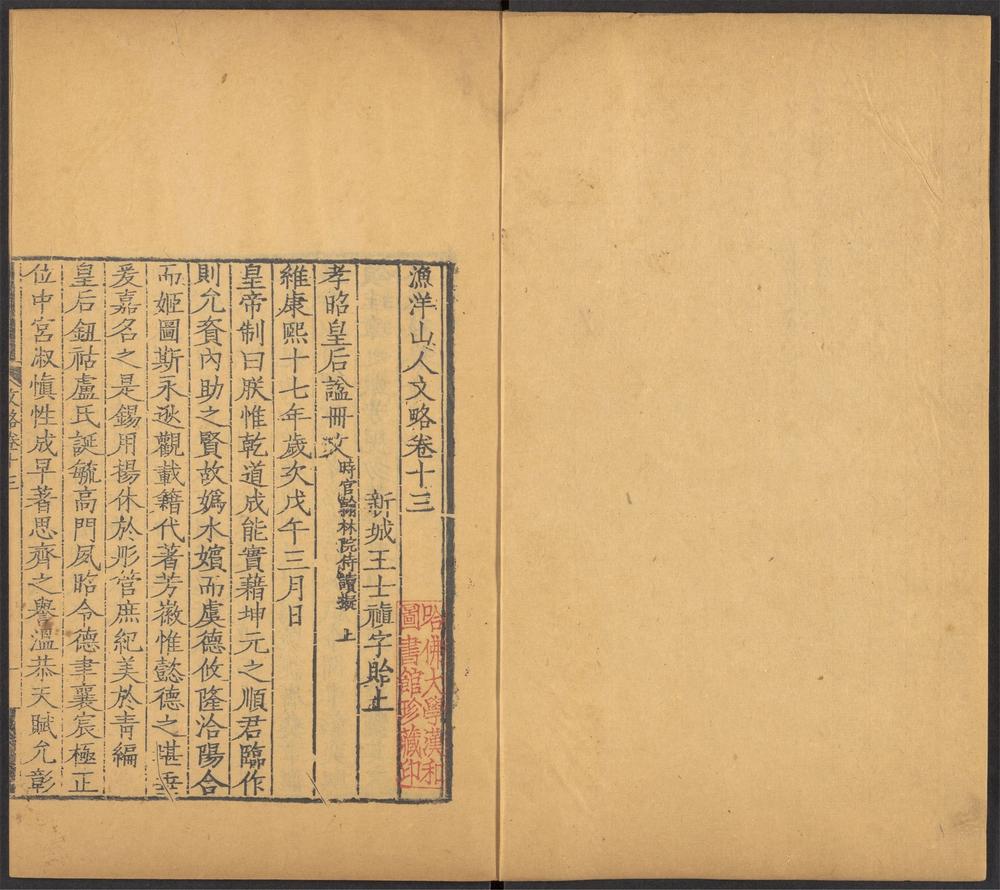 漁洋山人文略卷十三
新城王士禛字貽上
孝昭皇后諡冊文時官翰林院侍讀擬上
維康熙十七年歲次戊午三月日
皇帝制曰朕惟乾道成能實藉坤元之順君臨作
則允賚內助之賢故嬀水嬪而虞德攸隆洽陽合
而姬圖斯永逖觀載籍代著芳徽惟懿德之堪垂
爰嘉名之是錫用揚休於彤管庶紀美於青編
皇后鈕祜盧氏誕毓高門夙昭令德聿襄宸極正
位中宮淑慎性成早著思齊之譽溫恭天賦允彰
文略卷十三
哈佛大學漢和圖書館珍藏印